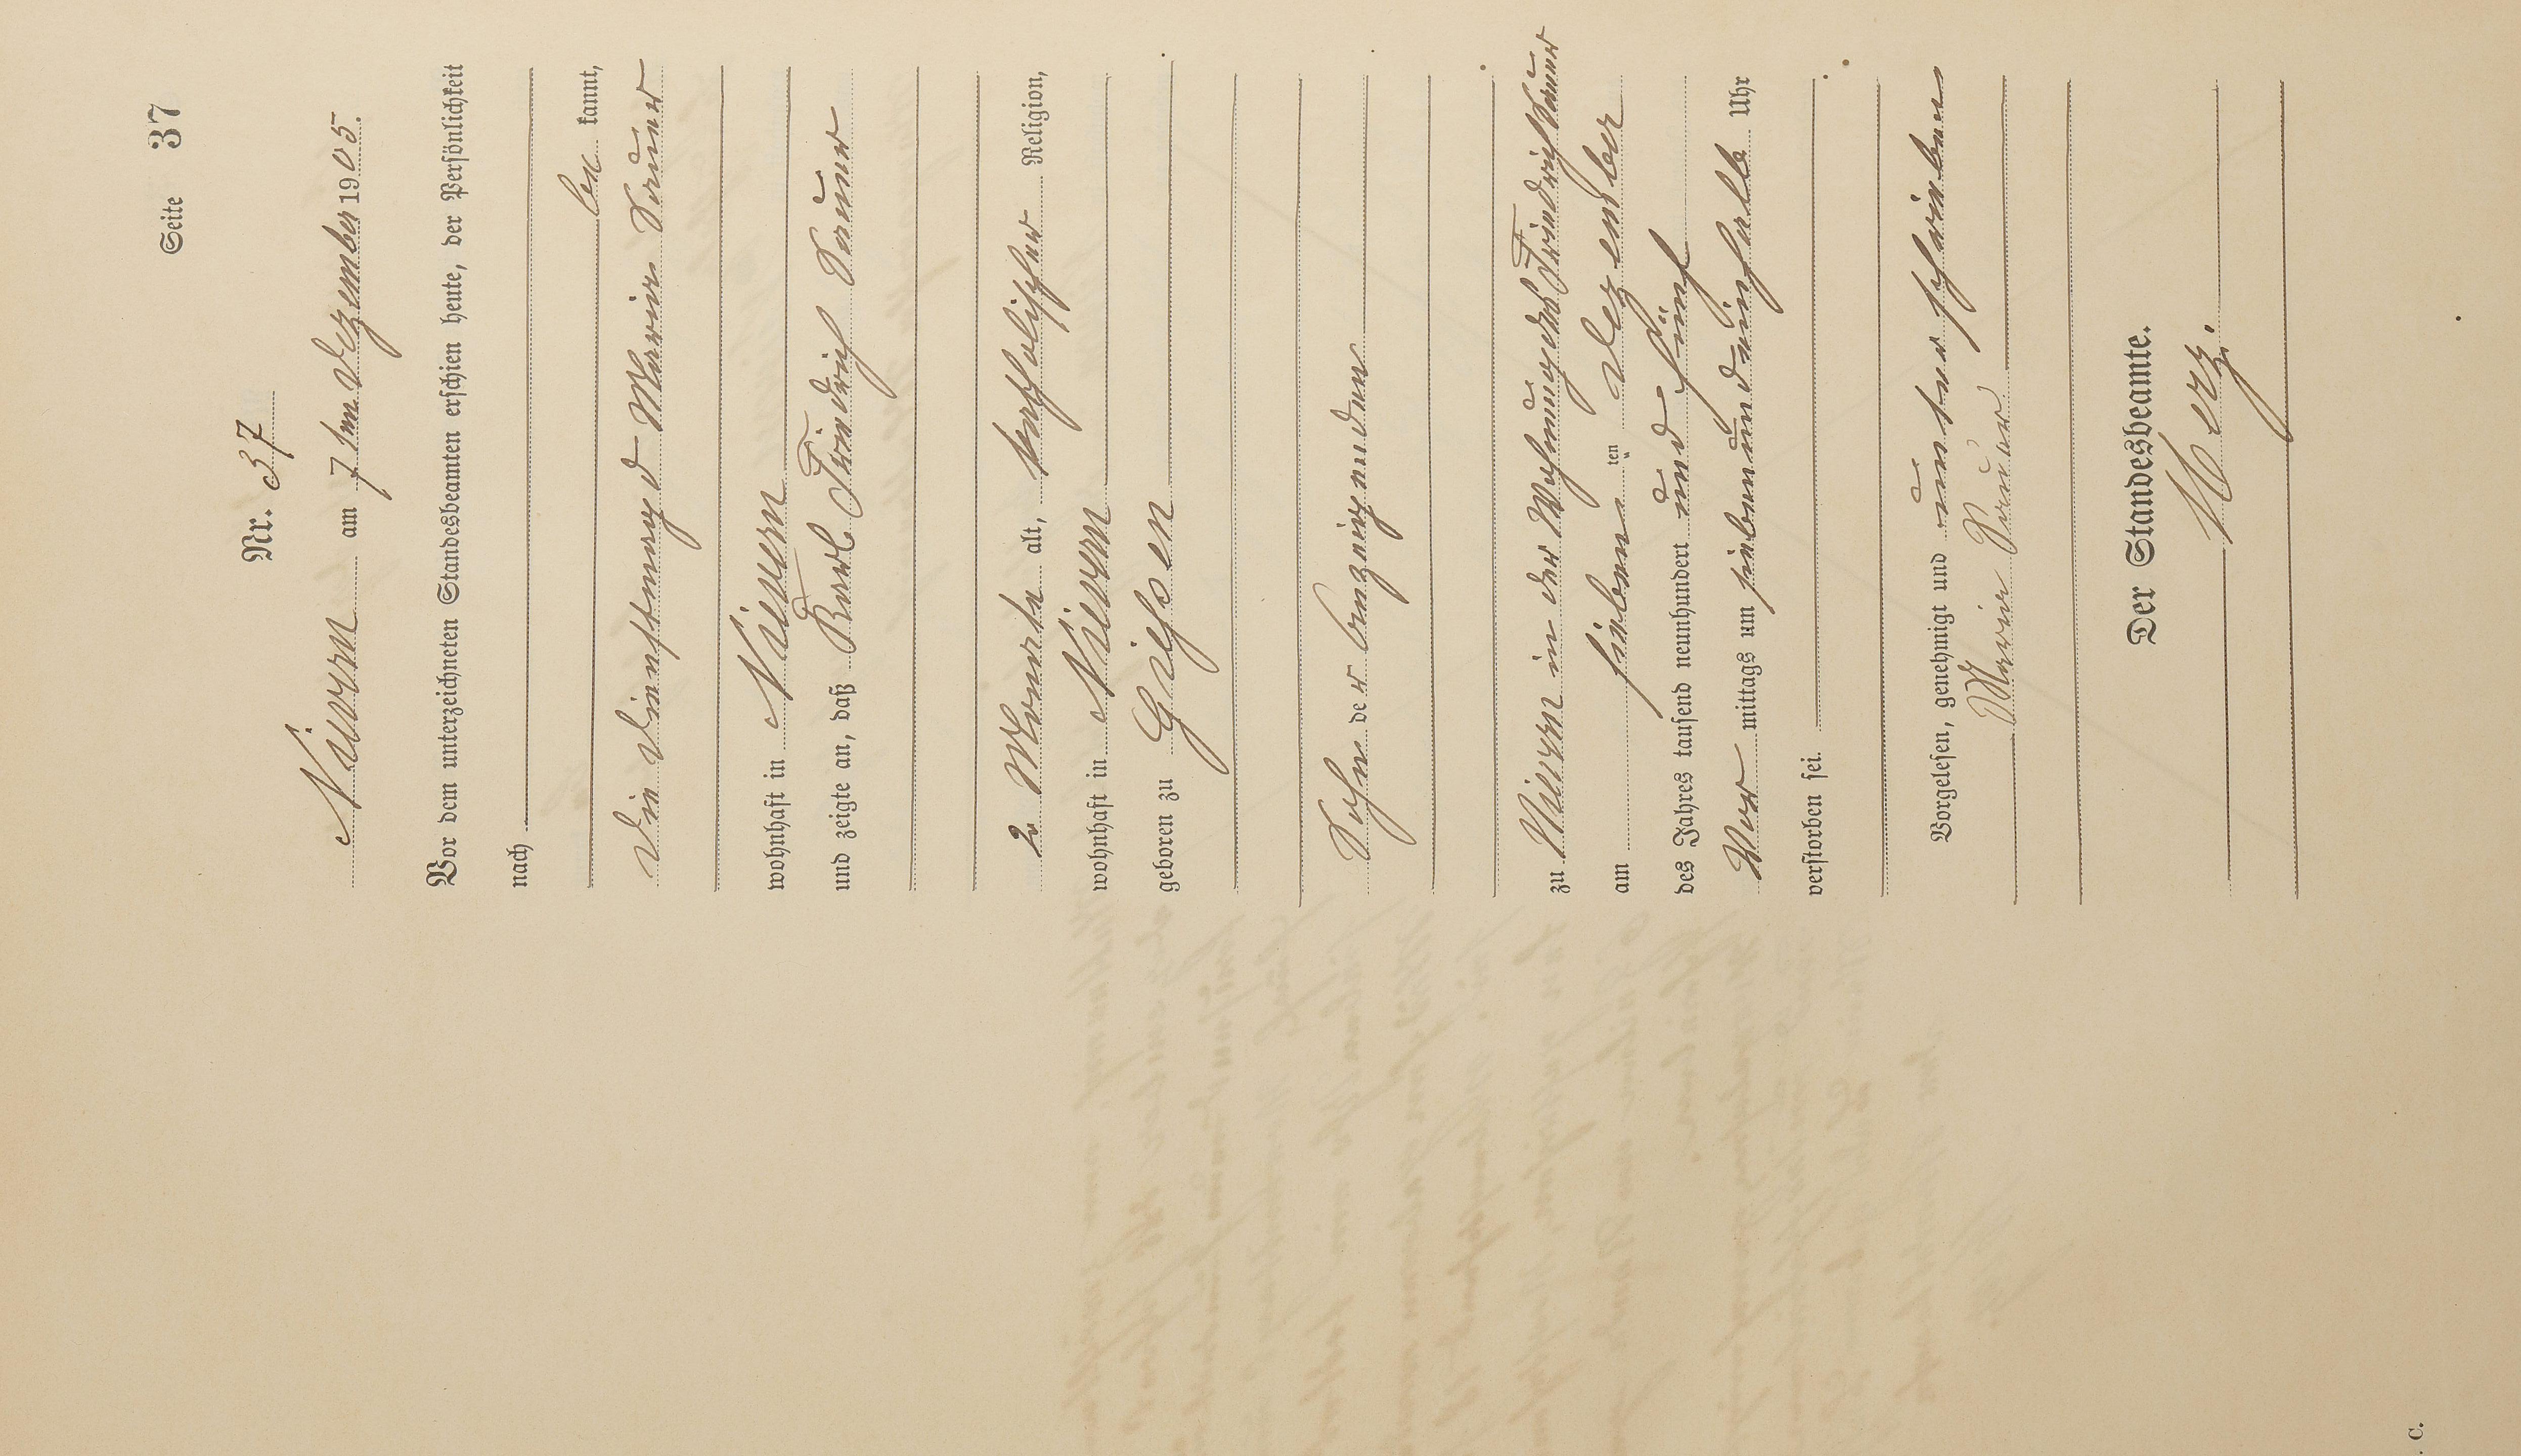 Seite 37
Nr. 37
Nievern am 7ten Dezember 1905.
Vor dem unterzeichneten Standesbeamten erschien heute, der Persönlichkeit
nach
be kannt,
die Dienstmagd Maria Sauer
wohnhaft in Nievern
und zeigte an, daß Karl Friedrich Sauer
2 Monate alt, katholischer Religion,
wohnhaft in Nievern
geboren zu Gießen
Sohn der Anzeigenden
zu Nievern in der Wohnung des Friedrich Sauer
am sieben ten Dezember
des Jahres tausend neunhundert und fünf
Vor mittags um siebenundeinhalb Uhr
verstorben sei.
Vorgelesen, genehmigt und unterschrieben
Maria Sauer
Der Standesbeamte.
Herz.
C.